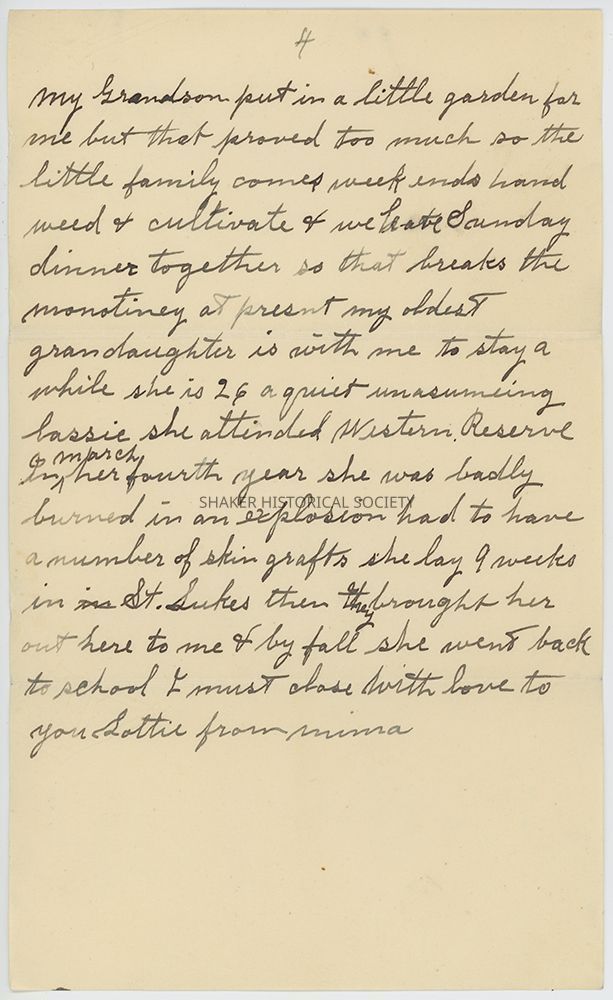 4
my Grandson put in a little garden for
me but that proved too much so the
little family comes week ends hand
weed & cultivate & we have Sunday
dinner together so that breaks the
monotiney at presnt my oldest
grandaughter is with me to stay a
while she is 26 a quiet unasumeing
lassie she attended Western Reserve
march
In her fourth year she was badly
SHAKER HISTORICAL SOCIETY
burned in an explosion had to have
a number of skin grafts she lay 9 weeks
in in St. Lukes then they brought her
out here to me & by fall she went back
to school I must close with love to
you Lottie from mima